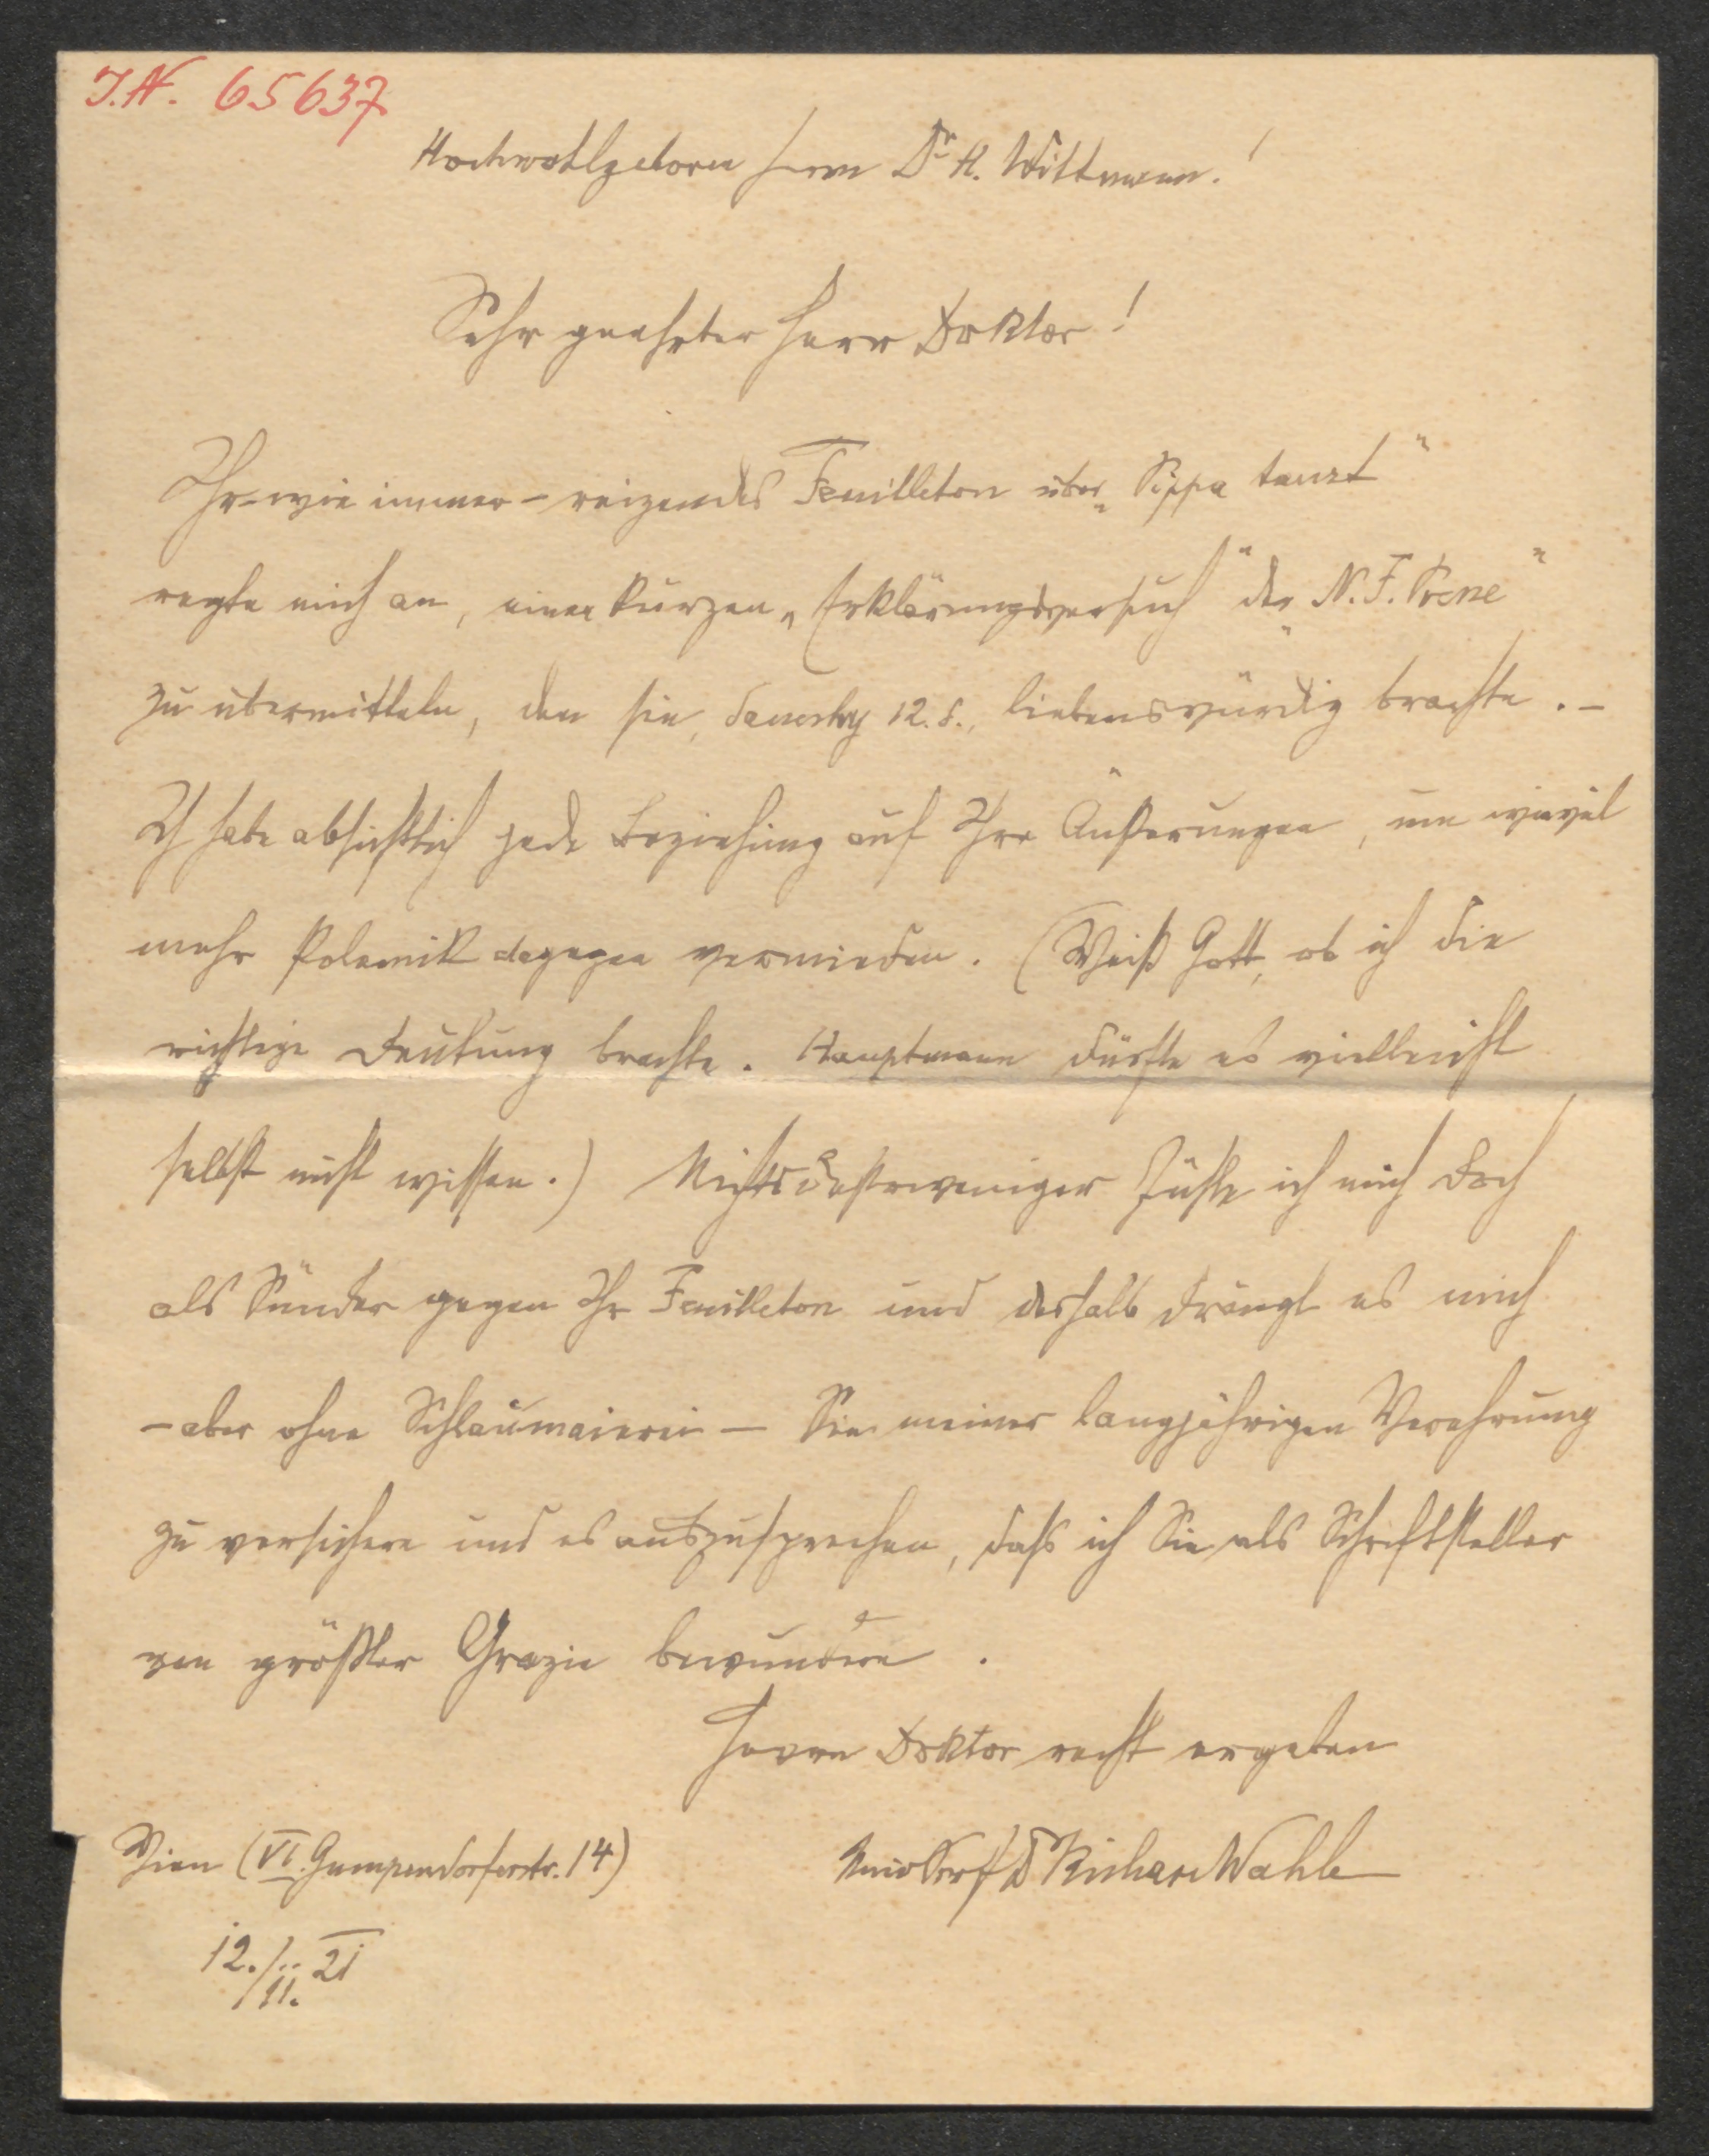 I.N. 65637
Hochwohlgeboren Herrn Dr H. Wittmann!
Sehr geehrter Herr Doktor!
Ihr – wie immer – reizendes Feuilleton über „Pippa tanzt“
regte mich an, einen kurzen „Erklärungsversuch“ der „N. F. Presse“
zu übermitteln, den sie, Samstag 12. d., liebenswürdig brachte. –
Ich habe absichtlich jede Beziehung auf Ihre Äußerungen, um wieviel
mehr Polemik dagegen vermieden. (Weiß Gott, ob ich die
richtige Deutung brachte. Hauptmann dürfte es vielleicht
selbst nicht wissen.) Nichtsdestoweniger fühle ich mich doch
als Sünder gegen Ihr Feuilleton und deshalb drängt es mich
– aber ohne Schlaumaierei – Sie meiner langjährigen Verehrung
zu versichern und es auszusprechen, daß ich Sie als Schriftsteller
von größter Grazie bewundere.
Herrn Doktor recht ergeben
Wien (VI. Gumpendorferstr. 14)
Dr Richard Wahle
12./II. 21